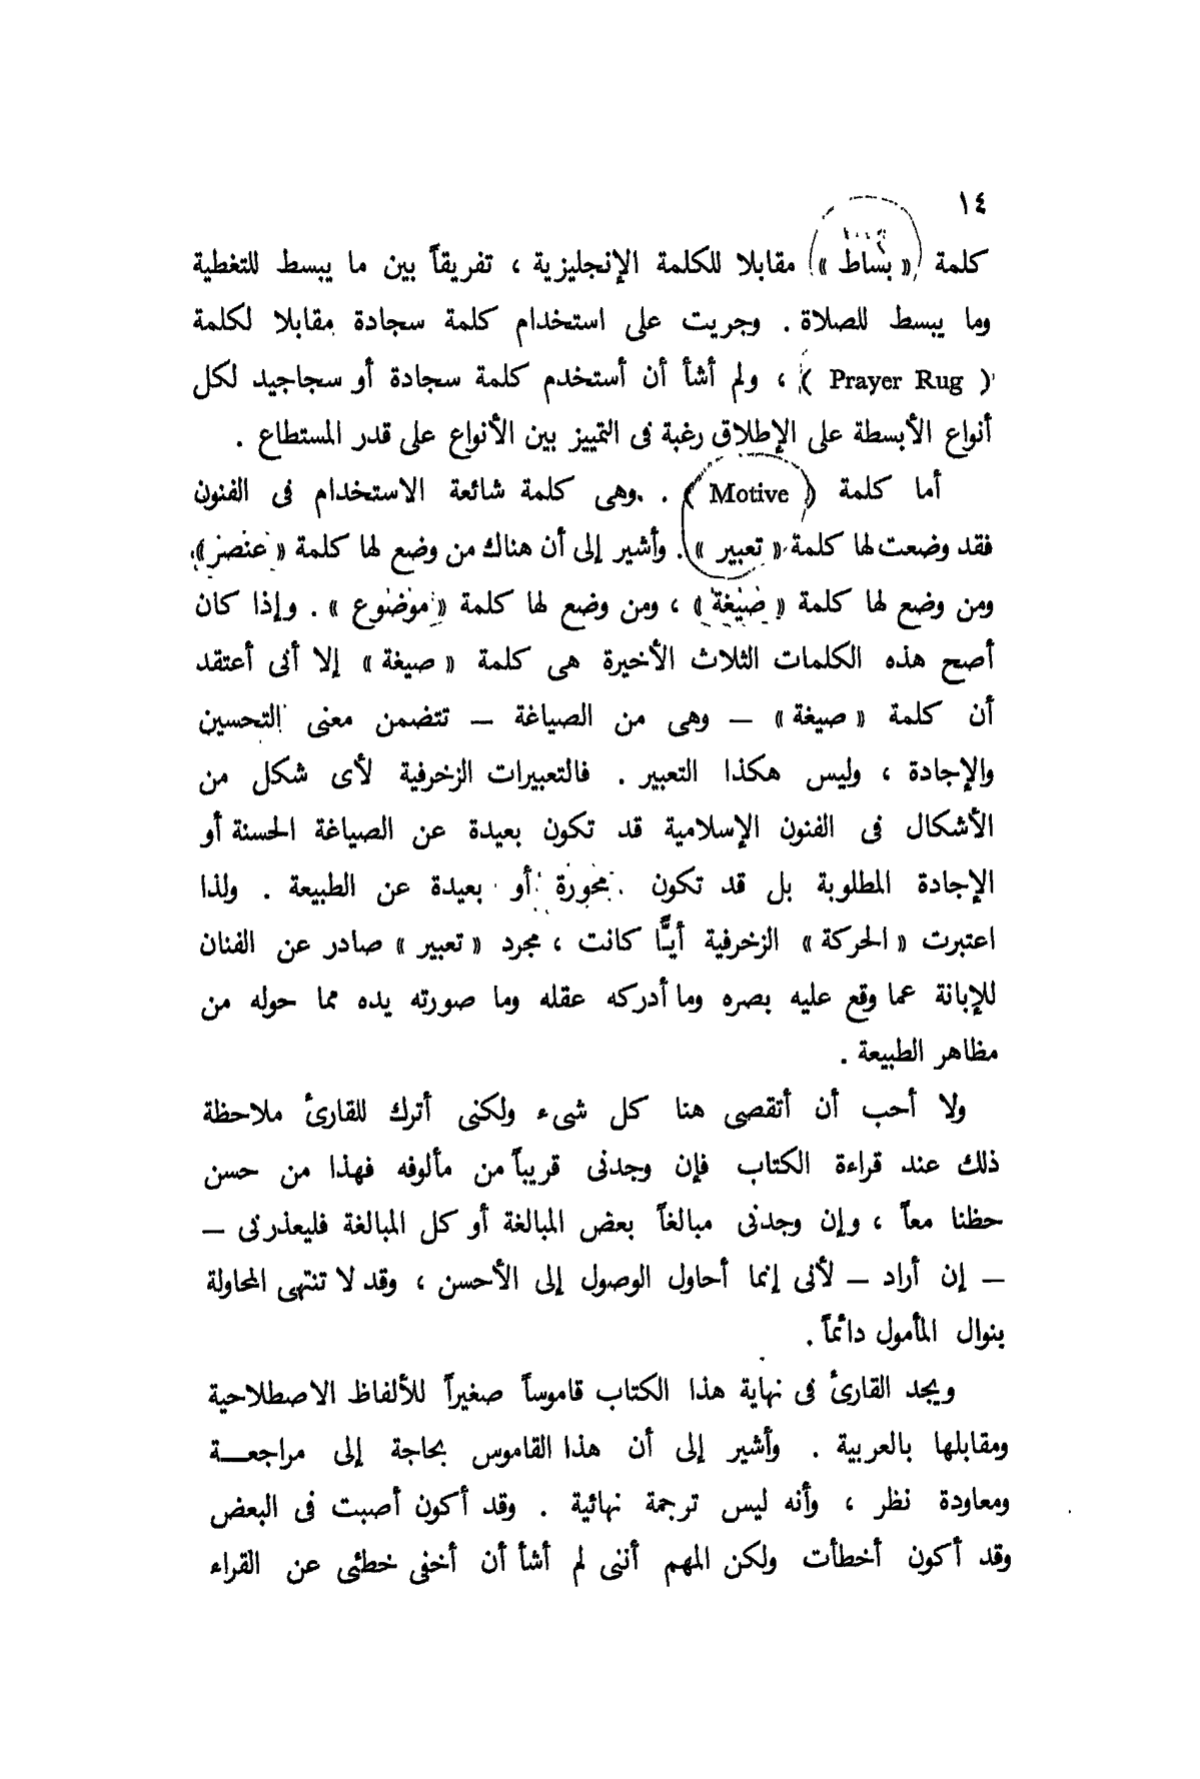 ١٤
كلمة « بساط » مقابلا للكلمة الإنجليزية ، تفريقاً بين ما يبسط للتغطية
وما يبسط للصلاة . وجريت على استخدام كلمة سجادة مقابلا لكلمة
( Prayer Rug ) ، ولم أشأ أن أستخدم كلمة سجادة أو سجاجيد لكل
أنواع الأبسطة على الإطلاق رغبة فى التمييز بين الأنواع على قدر المستطاع .
أما كلمة ( Motive ) . وهى كلمة شائعة الاستخدام فى الفنون
فقد وضعت لها كلمة « تعبير » . وأشير إلى أن هناك من وضع لها كلمة « عنصر » ،
ومن وضع لها كلمة « صيغة » ، ومن وضع لها كلمة « موضوع » . وإذا كان
أصح هذه الكلمات الثلاث الأخيرة هى كلمة « صيغة » إلا أنى أعتقد
أن كلمة « صيغة » — وهى من الصياغة — تتضمن معنى التحسين
والإجادة ، وليس هكذا التعبير . فالتعبيرات الزخرفية لأى شكل من
الأشكال فى الفنون الإسلامية قد تكون بعيدة عن الصياغة الحسنة أو
الإجادة المطلوبة بل قد تكون محورة أو بعيدة عن الطبيعة . ولذا
اعتبرت « الحركة » الزخرفية أيًّا كانت ، مجرد « تعبير » صادر عن الفنان
للإبانة عما وقع عليه بصره وما أدركه عقله وما صورته يده مما حوله من
مظاهر الطبيعة .
ولا أحب أن أتقصى هنا كل شىء ولكنى أترك للقارئ ملاحظة
ذلك عند قراءة الكتاب فإن وجدنى قريباً من مألوفه فهذا من حسن
حظنا معاً ، وإن وجدنى مبالغاً بعض المبالغة أو كل المبالغة فليعذرنى —
— إن أراد — لأنى إنما أحاول الوصول إلى الأحسن ، وقد لا تنتهى المحاولة
بنوال المأمول دائماً .
ويجد القارئ فى نهاية هذا الكتاب قاموساً صغيراً للألفاظ الاصطلاحية
ومقابلها بالعربية . وأشير إلى أن هذا القاموس بحاجة إلى مراجعـــة
ومعاودة نظر ، وأنه ليس ترجمة نهائية . وقد أكون أصبت فى البعض
وقد أكون أخطأت ولكن المهم أننى لم أشأ أن أخفى خطئى عن القراء